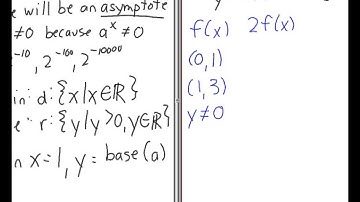 e will be an asymptote
≠0 because aˣ≠0
⁻¹⁰, 2⁻¹⁰⁰, 2⁻¹⁰⁰⁰⁰
in: d:{x/x∈ℝ}
e: r:{y/y>0,y∈ℝ}
n x=1, y= base(a)
f(x) 2f(x)
(0,1)
(1,3)
y≠0